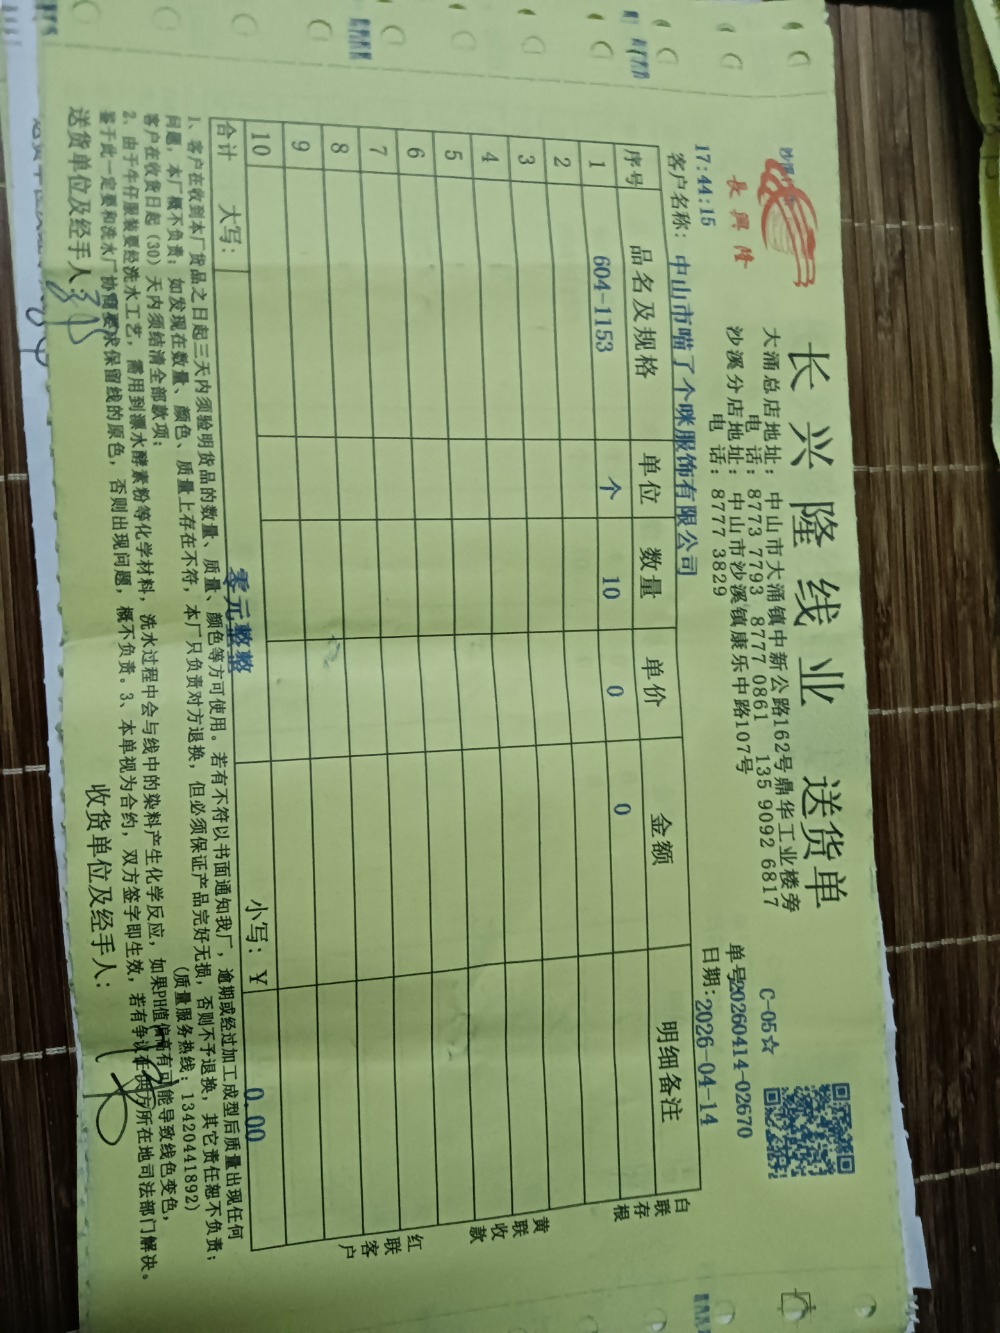 长兴隆线业 送货单
長興隆
大涌总店地址：中山市大涌镇中新公路162号鼎华工业楼旁
电 话：8773 7793 8777 0861 135 9092 6817
沙溪分店地址：中山市沙溪镇康乐中路107号
电 话：8777 3829
C-05☆
单号20260414-02670
17:44:15
日期:2026-04-14
客户名称：中山市喵了个咪服饰有限公司
序号 品名及规格 单位 数量 单价 金额 明细备注
1 604-1153 个 10 0 0
2
3
4
5
6
7
8
9
10
合计 大写： 零元整整 小写：￥ 0.00
白联存根
黄联收款
红联客户
1、客户在收到本厂货品之日起三天内须验明货品的数量、质量、颜色等方可使用。若有不符以书面通知我厂，逾期或经过加工成型后质量出现任何
问题，本厂概不负责；如发现在数量、颜色、质量上存在不符，本厂只负责对方退换，但必须保证产品完好无损，否则不予退换，其它责任恕不负责；
客户在收货日起（30）天内须结清全部款项； （质量服务热线：13420441892）
2、由于牛仔服装要经洗水工艺，需用到漂水酵素粉等化学材料，洗水过程中会与线中的染料产生化学反应，如果PH值偏高有可能导致线色变色，
鉴于此一定要和洗水厂协商要求保留线的原色，否则出现问题，概不负责。3、本单视为合约，双方签字即生效，若有争议在供方所在地司法部门解决。
送货单位及经手人：
收货单位及经手人：